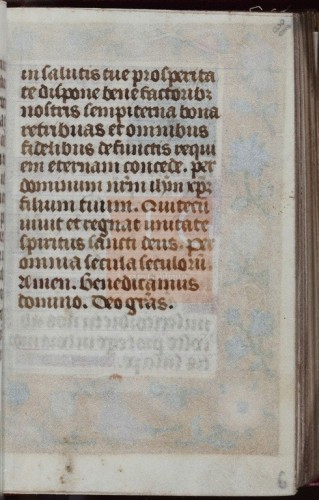 in salutis tue prosperita
te dispone bene factoribz
nostris sempiterna bona
retribuas et omnibus
fidelibus defunctis requi
em eternam concede. per
dominum nrm ihm xpz
filium tuum. Qui tecū
vivit et regnat unitate
spiritus sancti deus. Per
omnia secula seculorū.
Amen. Benedicamus
domino. Deo gras.
6